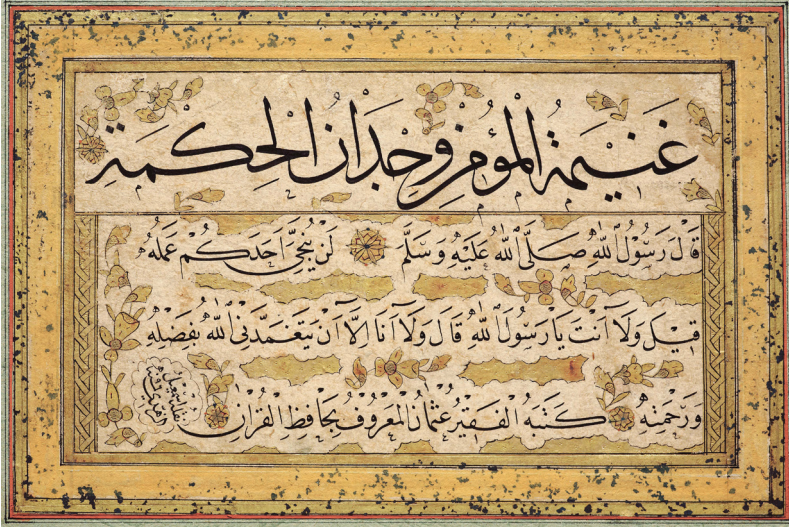 غَنِيمَةُ الْمُؤْمِنِ وِجْدَانُ الْحِكْمَةِ
قَالَ رَسُولُ اللّٰهِ صَلَّى اللّٰهُ عَلَيْهِ وَسَلَّمَ لَنْ يُنْجِيَ اَحَدَكُمْ عَمَلُهُ
قِيلَ وَلَا اَنْتَ يَا رَسُولَ اللّٰهِ قَالَ وَلَا اَنَا اِلَّا اَنْ يَتَغَمَّدَنِيَ اللّٰهُ بِفَضْلِهِ
وَرَحْمَتِهِ كَتَبَهُ الْفَقِيرُ عُثْمَانُ الْمَعْرُوفُ بِحَافِظِ الْقُرْاٰنِ